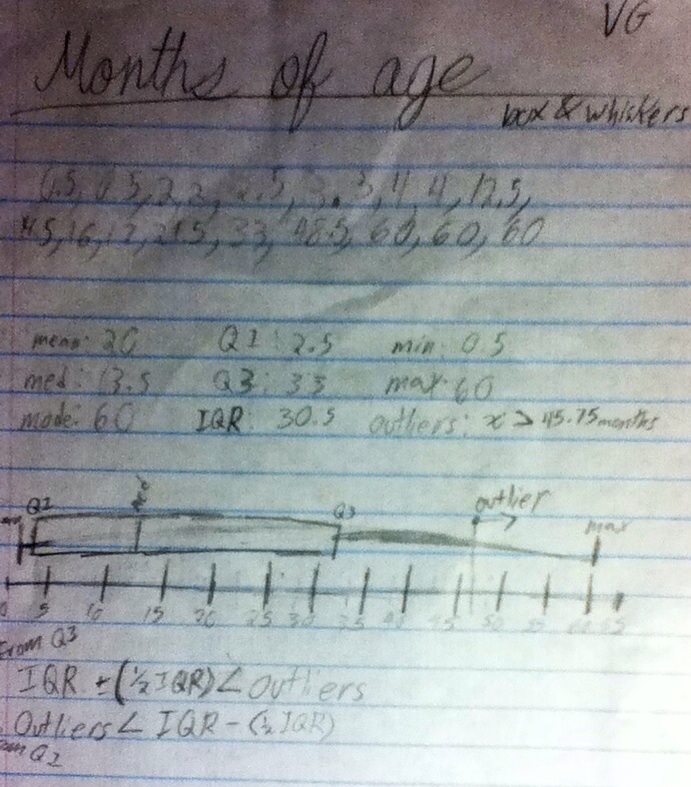 VG
Months of age
box & whiskers
0.5, 0.5, 2, 2, 2.5, 3, 3, 4, 4, 12.5,
16, 17, 33, 48.5, 60, 60, 60
mean: 20 Q1: 2.5 min: 0.5
med: 13.5 Q3: 33 max: 60
mode: 60 IQR: 30.5 outliers: x > 45.75 months
Q1 med Q3 outlier max
0 5 10 15 20 25 30 35 40 45 50 55 60 65
From Q3
IQR ± (1/2 IQR) < outliers
Outliers < IQR - (1/2 IQR)